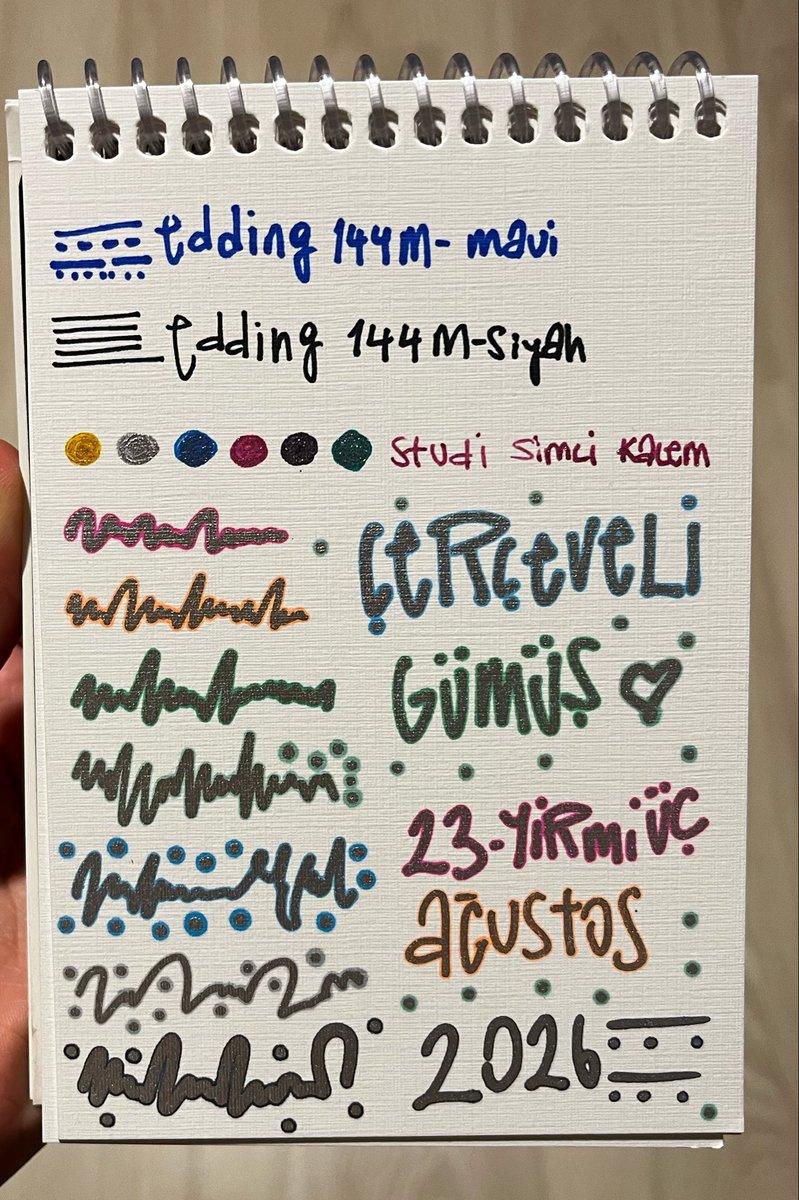 edding 144M- mavi
edding 144M-siyah
studi simli kalem
ÇERÇEVELİ
GÜMÜŞ
23-YİRMİ ÜÇ
AĞUSTOS
2026